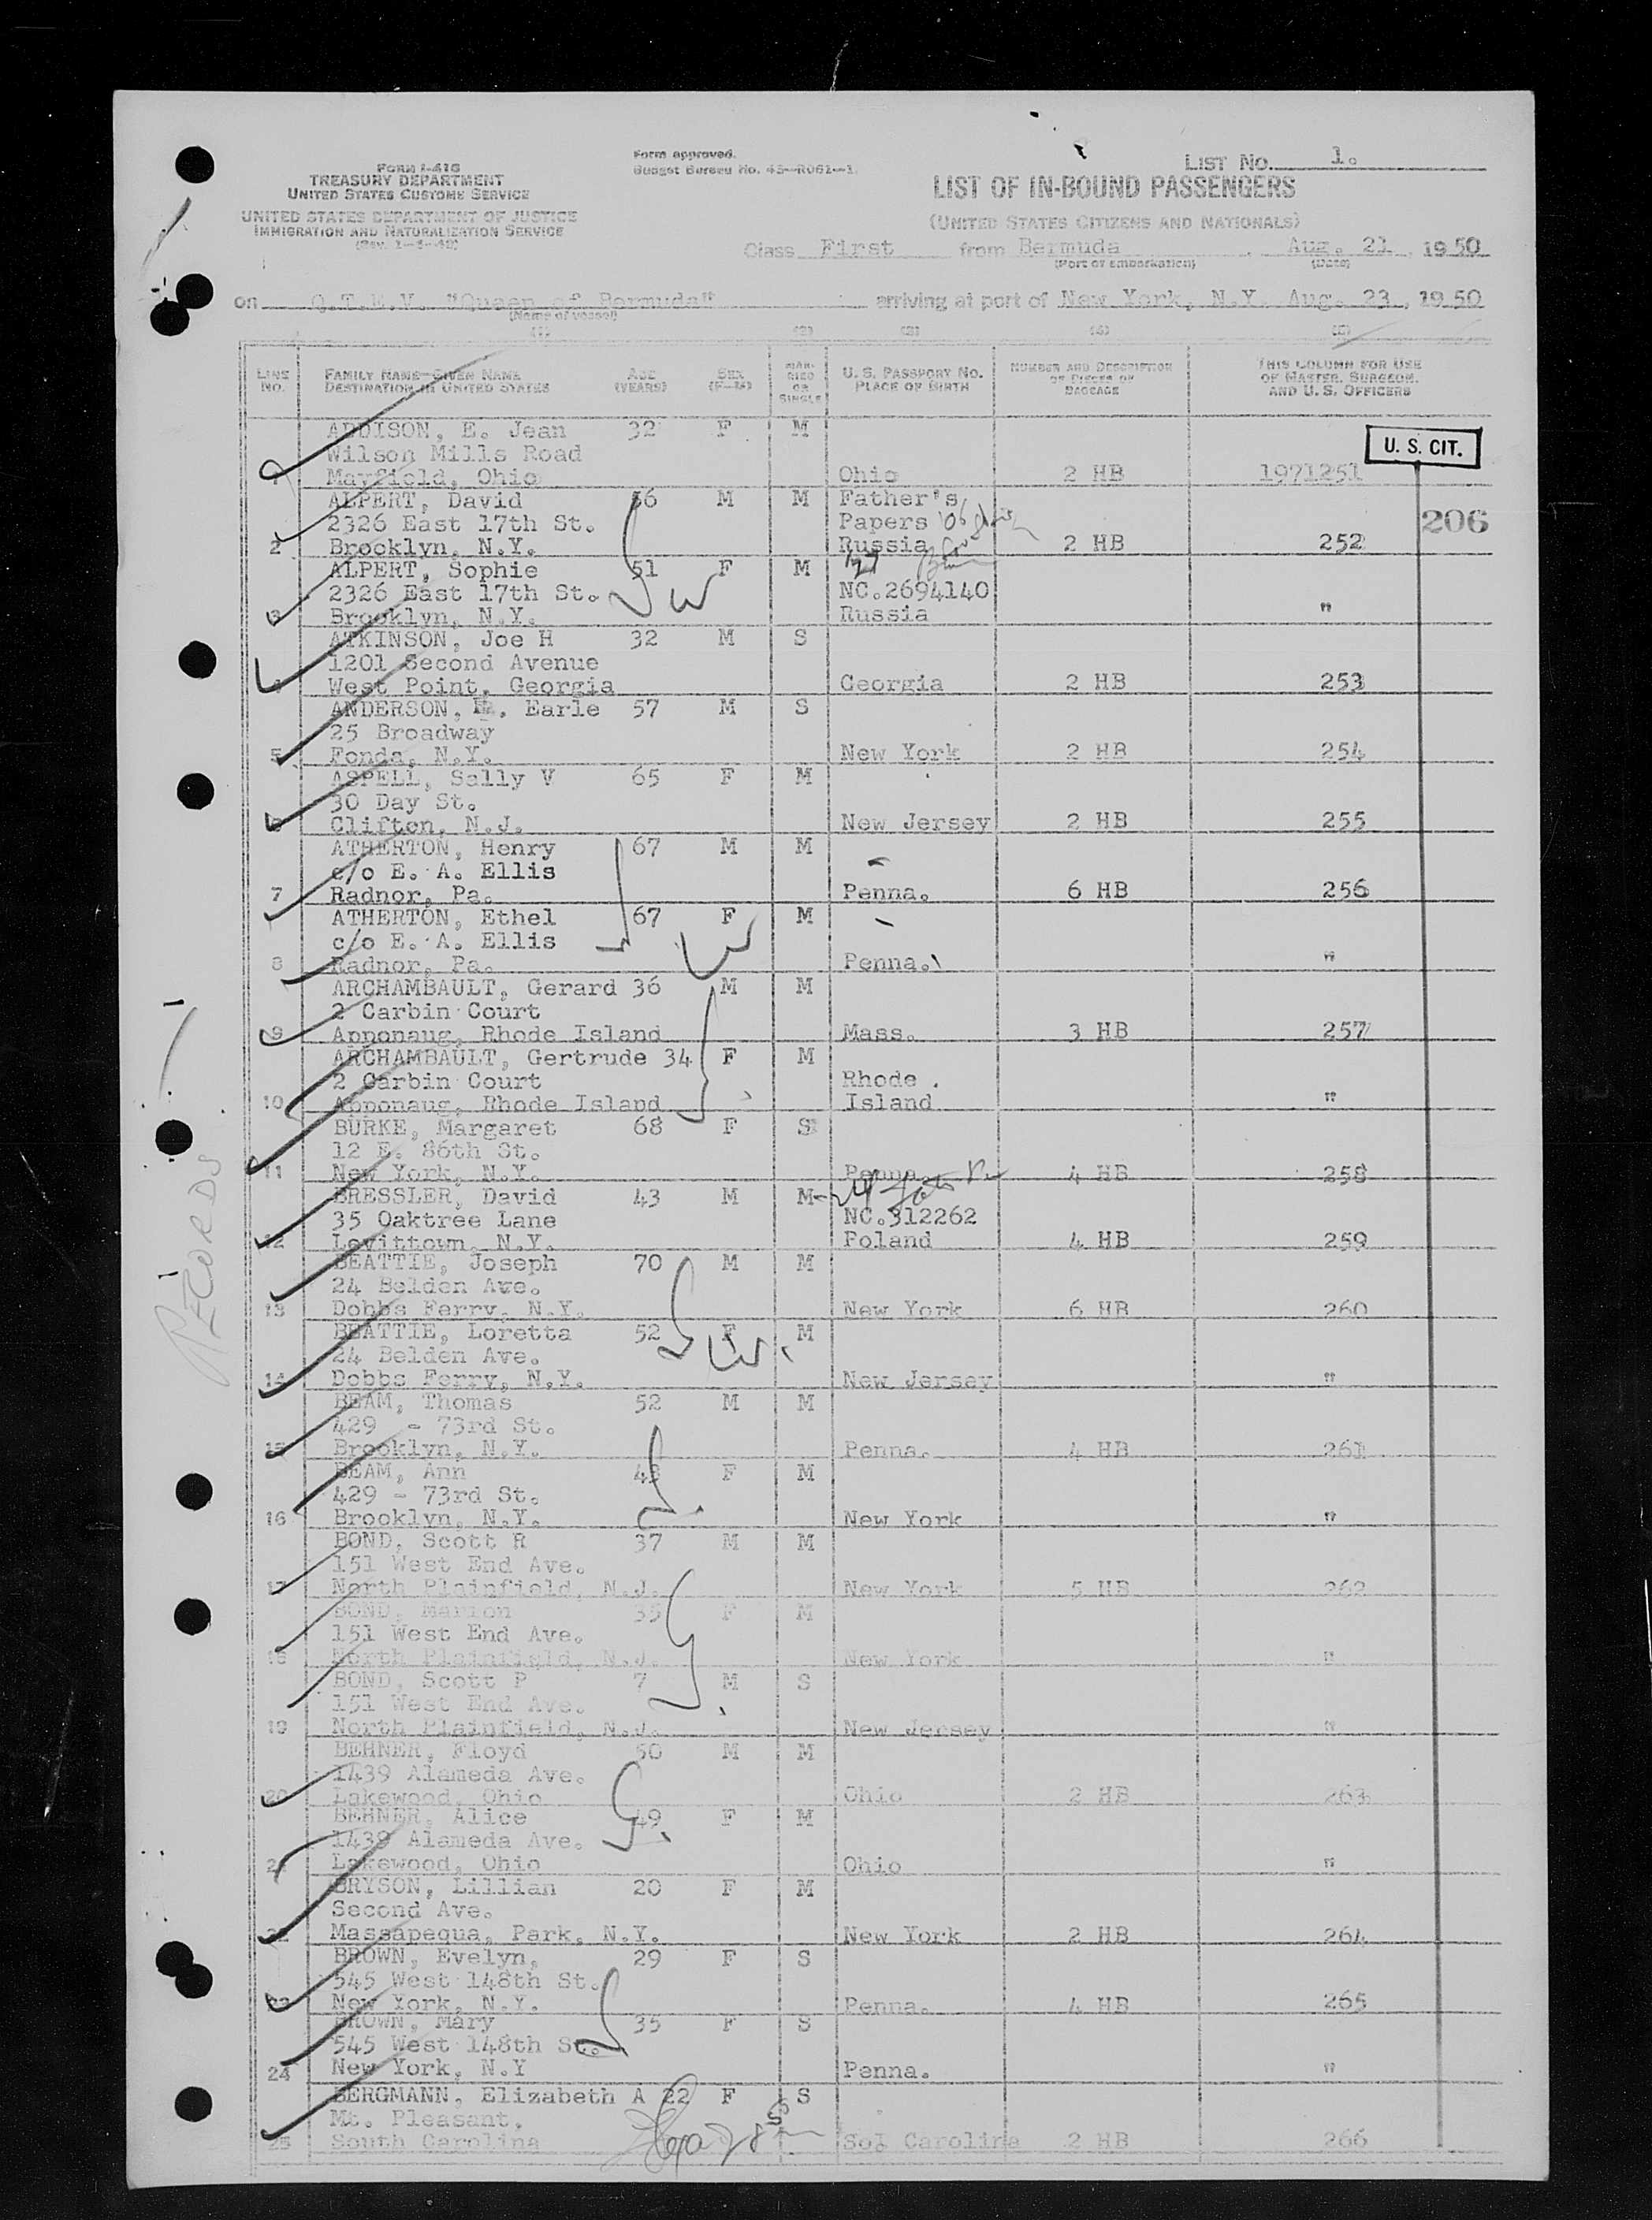 LIST NO. 1.
FORM I-416
TREASURY DEPARTMENT
UNITED STATES CUSTOMS SERVICE
UNITED STATES DEPARTMENT OF JUSTICE
IMMIGRATION AND NATURALIZATION SERVICE
Form approved.
Budget Bureau No. 43-R061-1.
LIST OF IN-BOUND PASSENGERS
(UNITED STATES CITIZENS AND NATIONALS)
Class First from Bermuda, Aug. 21, 1950
(Port of embarkation) (Date)
on Q.T.E.V. "Queen of Bermuda" arriving at port of New York, N.Y. Aug. 23, 1950
(Name of vessel)
(1) (2) (3) (4) (5)
LINE NO. FAMILY NAME—GIVEN NAME DESTINATION IN UNITED STATES AGE (YEARS) SEX (F-M) MARRIED OR SINGLE U. S. PASSPORT NO. PLACE OF BIRTH NUMBER AND DESCRIPTION OF PIECES OF BAGGAGE THIS COLUMN FOR USE OF MASTER, SURGEON, AND U. S. OFFICERS
ADDISON, E. Jean 32 F M
Wilson Mills Road U. S. CIT.
1 Mayfield, Ohio Ohio 2 HB 1971251
ALPERT, David 56 M M Father's
2326 East 17th St. Papers '06 206
2 Brooklyn, N.Y. Russia 2 HB 252
ALPERT, Sophie 51 F M 27
2326 East 17th St. W NC.2694140
3 Brooklyn, N.Y. Russia "
ATKINSON, Joe H 32 M S
1201 Second Avenue
4 West Point, Georgia Georgia 2 HB 253
ANDERSON, . Earle 57 M S
25 Broadway
5 Fonda, N.Y. New York 2 HB 254
ASPELL, Sally V 65 F M
30 Day St.
6 Clifton, N.J. New Jersey 2 HB 255
ATHERTON, Henry 67 M M
c/o E. A. Ellis
7 Radnor, Pa. Penna. 6 HB 256
ATHERTON, Ethel 67 F M
c/o E. A. Ellis W
8 Radnor, Pa. Penna. "
ARCHAMBAULT, Gerard 36 M M
2 Carbin Court
9 Apponaug, Rhode Island Mass. 3 HB 257
ARCHAMBAULT, Gertrude 34 F M
2 Carbin Court Rhode
10 Apponaug, Rhode Island Island "
BURKE, Margaret 68 F S
12 E. 86th St.
11 New York, N.Y. Penna. 4 HB 258
BRESSLER, David 43 M M
35 Oaktree Lane NC.312262
12 Levittown, N.Y. Poland 4 HB 259
BEATTIE, Joseph 70 M M
24 Belden Ave.
13 Dobbs Ferry, N.Y. New York 6 HB 260
BEATTIE, Loretta 52 F M
24 Belden Ave. W.
14 Dobbs Ferry, N.Y. New Jersey "
BEAM, Thomas 52 M M
429 - 73rd St.
15 Brooklyn, N.Y. Penna. 4 HB 261
BEAM, Ann 43 F M
429 - 73rd St.
16 Brooklyn, N.Y. New York "
BOND, Scott R 37 M M
151 West End Ave.
17 North Plainfield, N.J. New York 5 HB 262
BOND, Marion 35 F M
151 West End Ave.
18 North Plainfield, N.J. New York "
BOND, Scott P 7 M S
151 West End Ave.
19 North Plainfield, N.J. New Jersey "
BEHNER, Floyd 50 M M
1439 Alameda Ave.
20 Lakewood, Ohio Ohio 2 HB 263
BEHNER, Alice 49 F M
1439 Alameda Ave.
21 Lakewood, Ohio Ohio "
BRYSON, Lillian 20 F M
Second Ave.
22 Massapequa, Park, N.Y. New York 2 HB 264
BROWN, Evelyn, 29 F S
545 West 148th St.
23 New York, N.Y. Penna. 4 HB 265
BROWN, Mary 35 F S
545 West 148th St.
24 New York, N.Y Penna. "
BERGMANN, Elizabeth A 22 F S
Mt. Pleasant,
25 South Carolina So. Carolina 2 HB 266
RECORDS